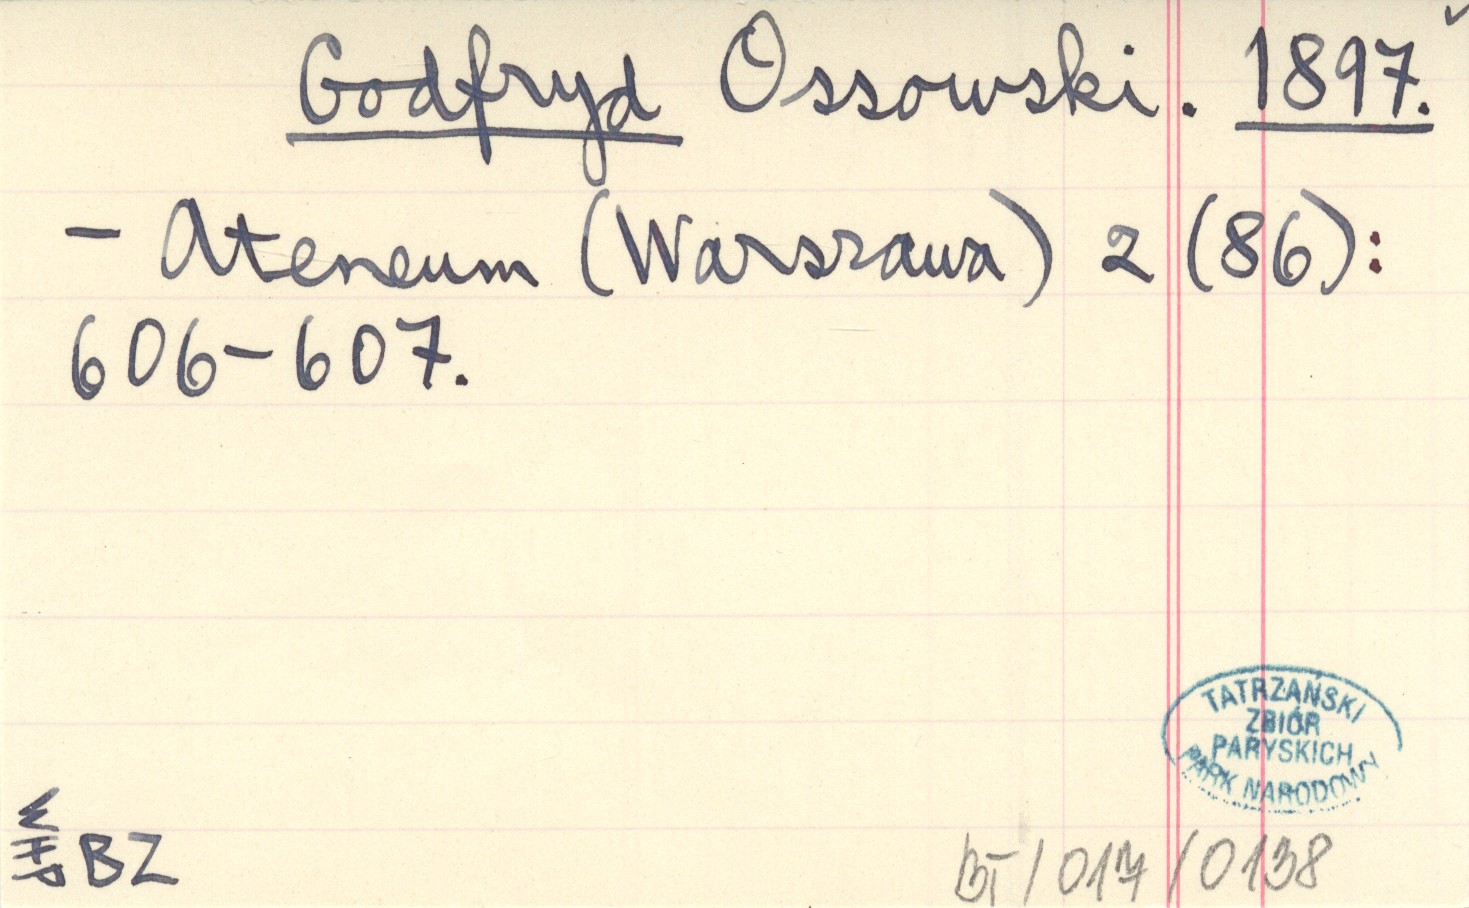 Godfryd Ossowski. 1897.
- Ateneum (Warszawa) 2 (86):
606-607.
TATRZAŃSKI
ZBIÓR
PARYSKICH
PARK NARODOWY
BZ
BT/017/0138